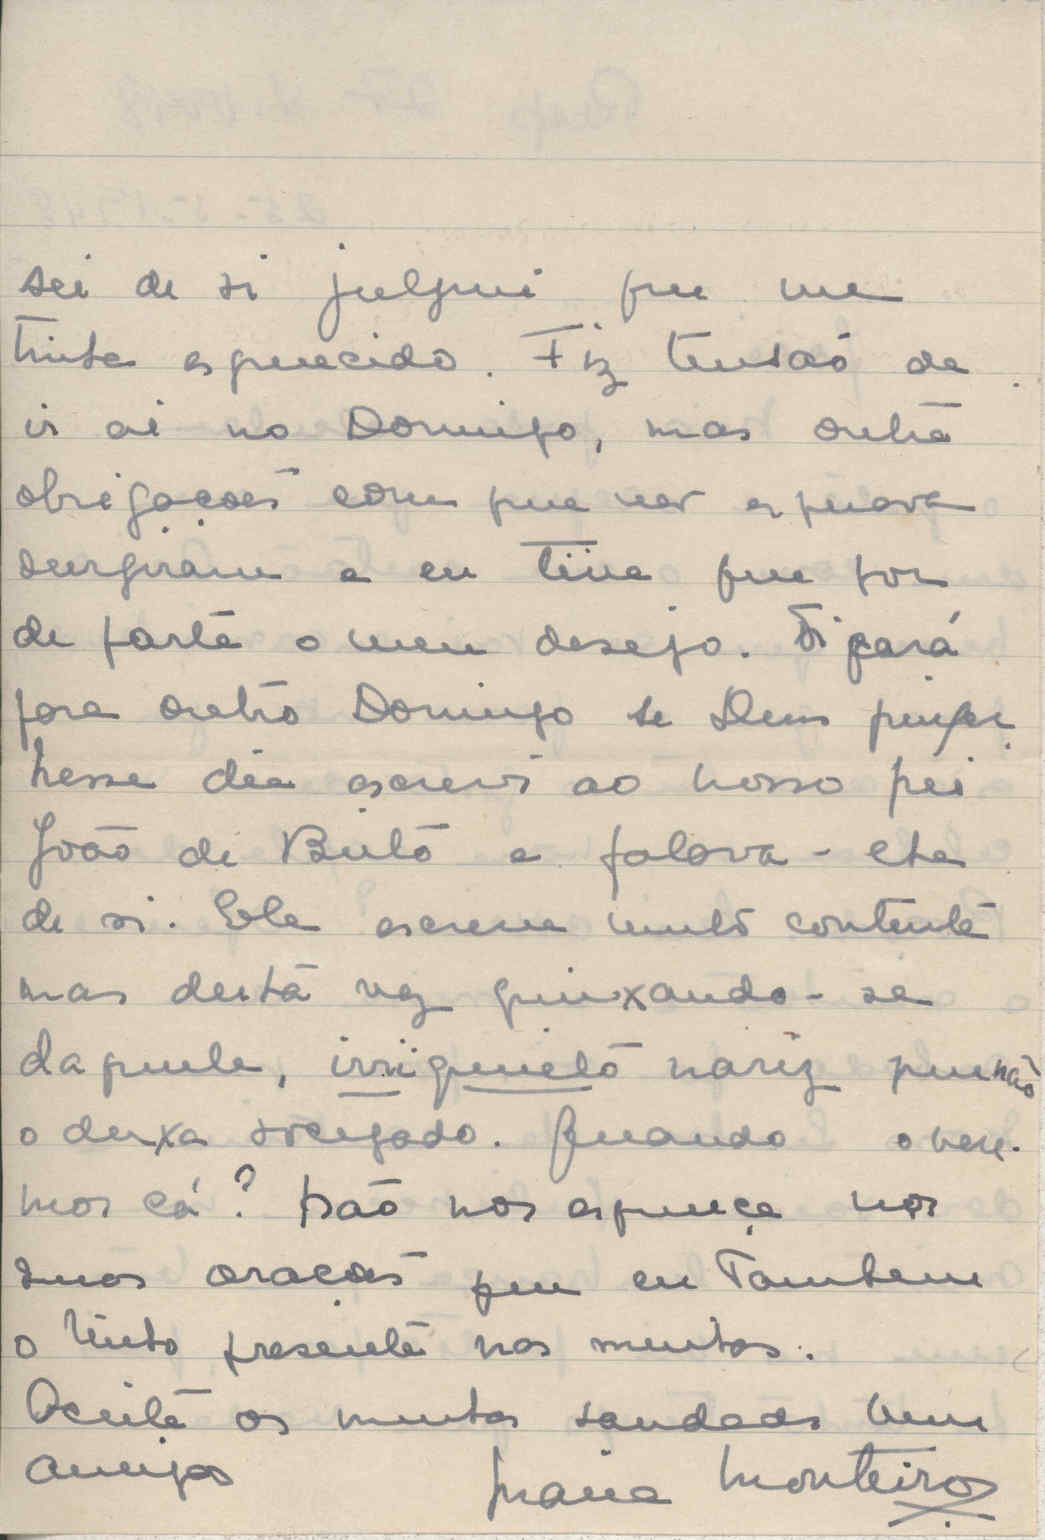 sei de si julguei que me
tinha esquecido. Fiz tensão de
ir ai no Domingo, mas outra
obrigações com que não esperava
surgiram e eu tive que por
de parte o meu desejo. Ficará
para outro Domingo se Deus quiser.
Nesse dia escrevi ao nosso
João de Brito e falava-lhe
de si. Ele escreve muito contente
mas desta vez queixando-se
daquele, irriqueto nariz que não
o deixa socegado. Quando o vere-
mos cá? Não nos esqueça nas
suas orações que eu Tambem
o tenho presente nas minhas.
Aceite as muitas saudades
amiga Maria Monteiro